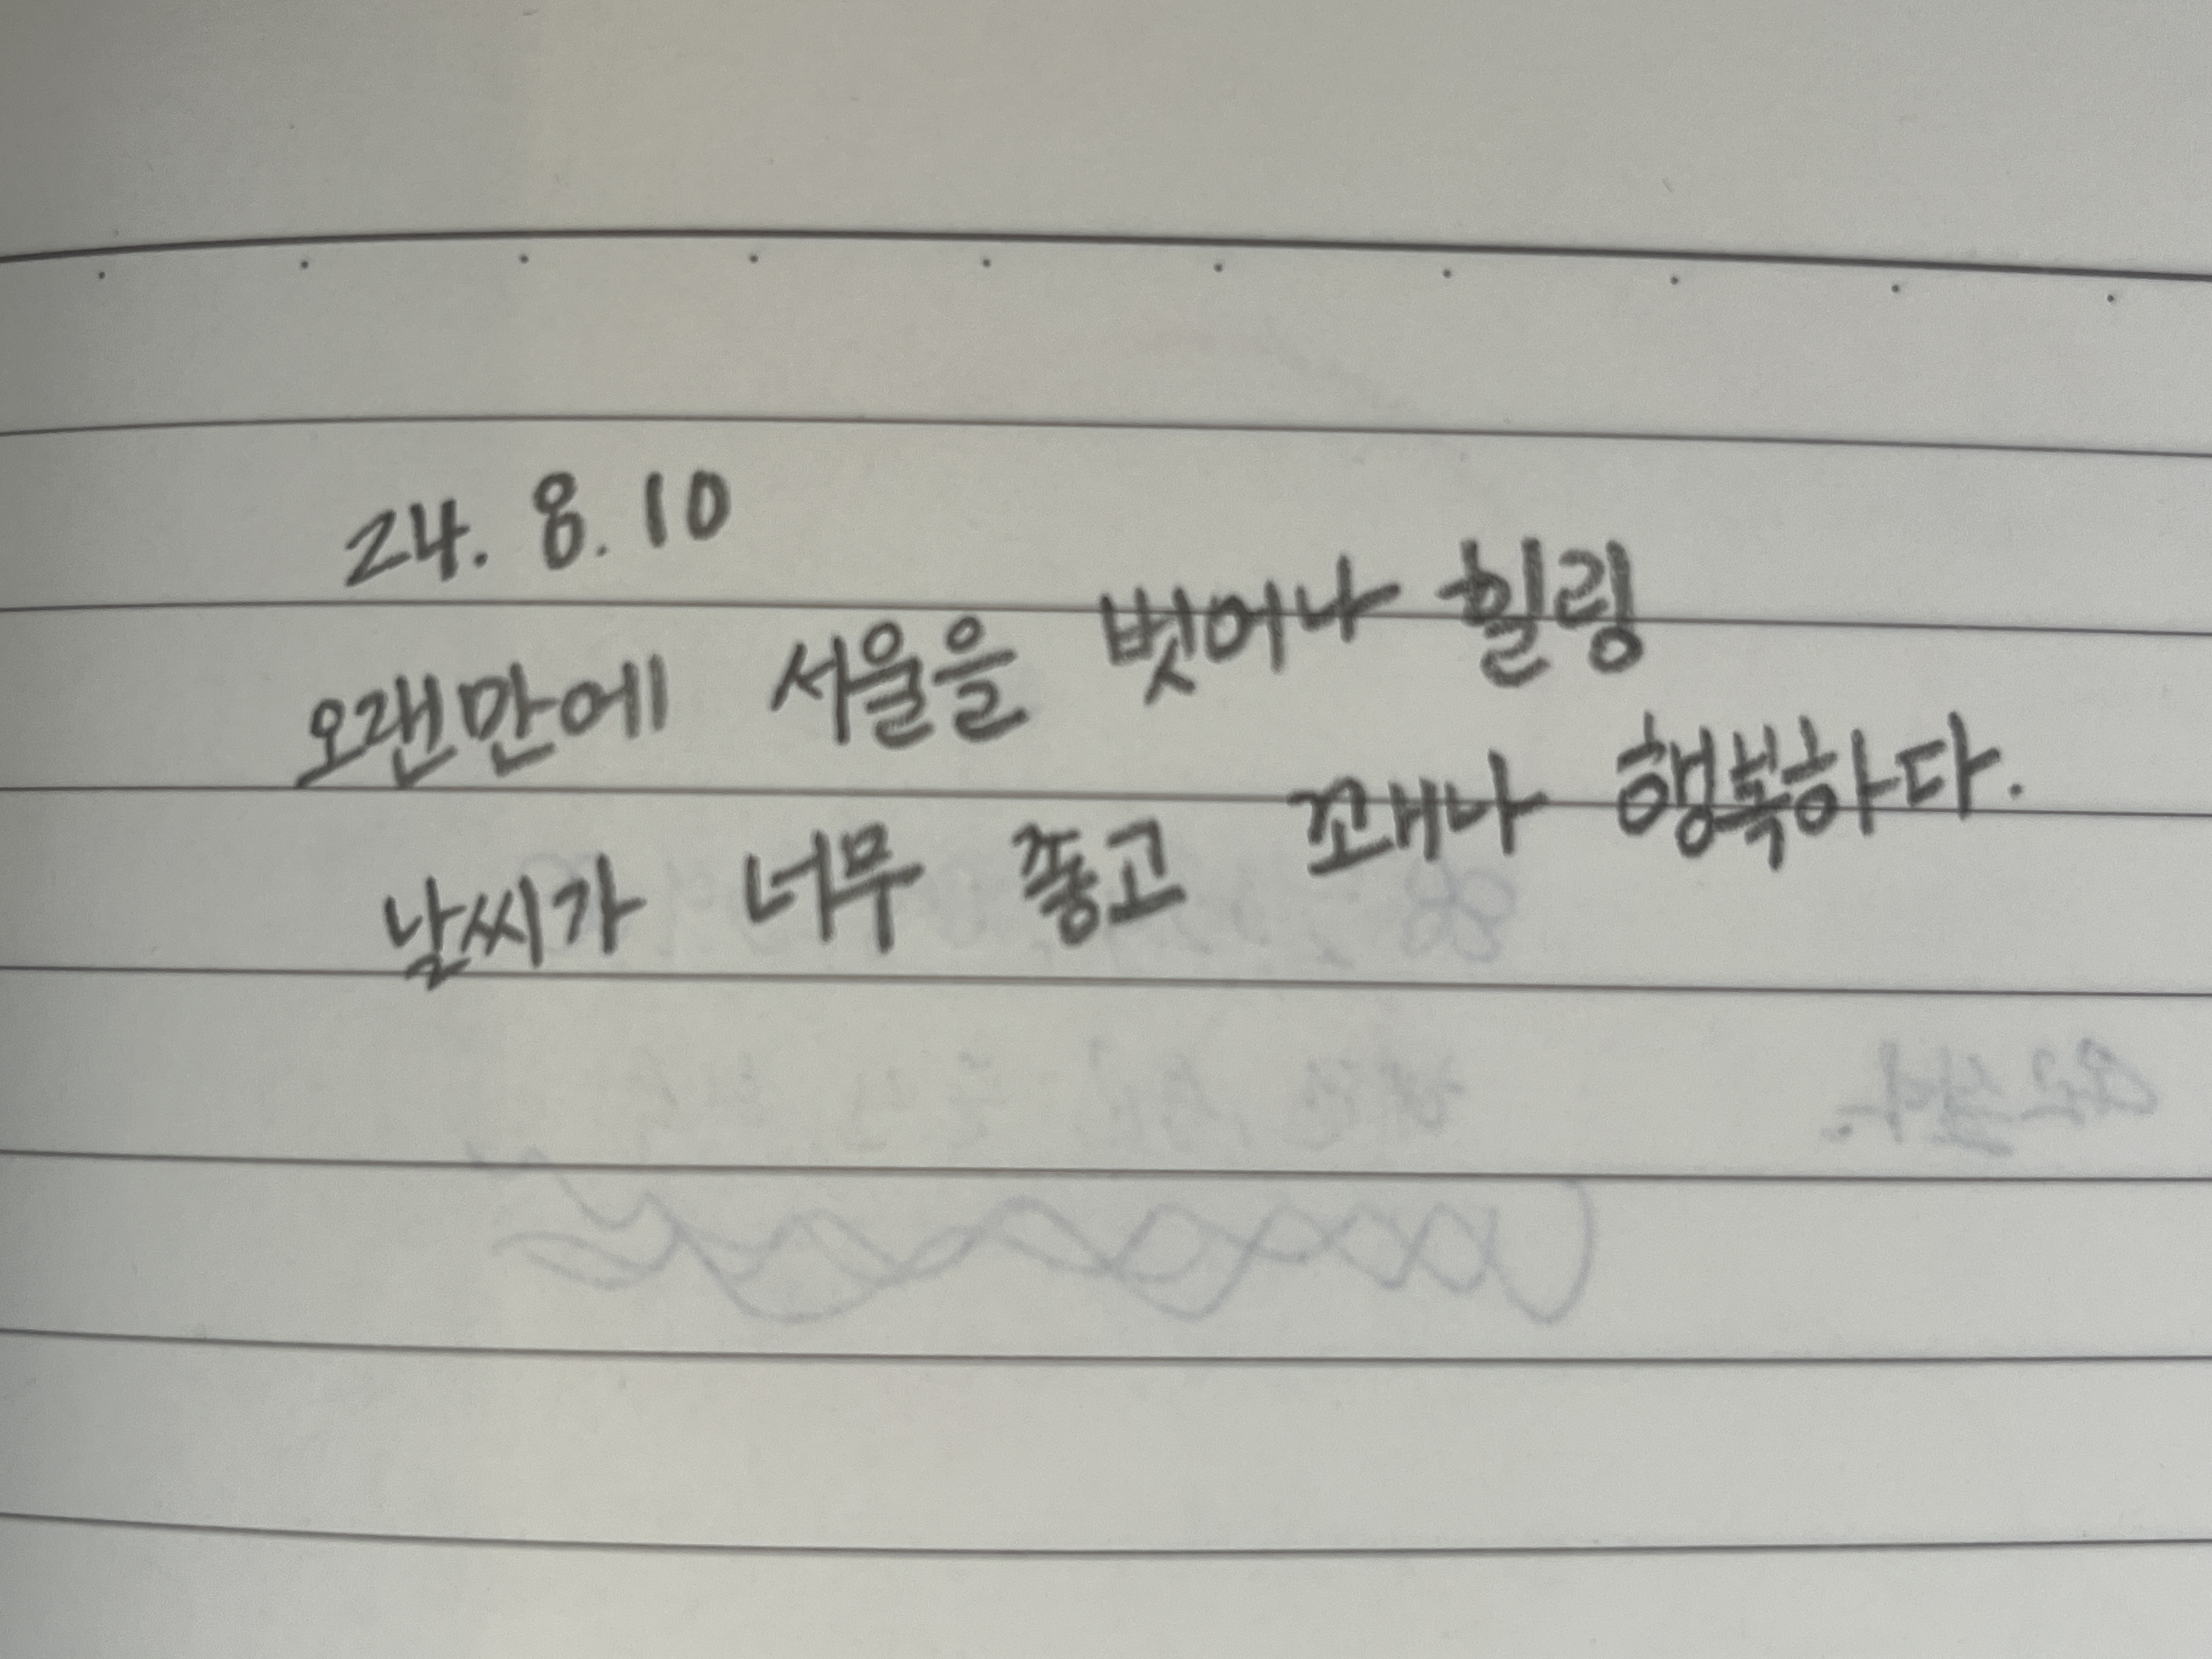 24. 8. 10
오랜만에 서울을 벗어나 힐링
날씨가 너무 좋고 꽤나 행복하다.